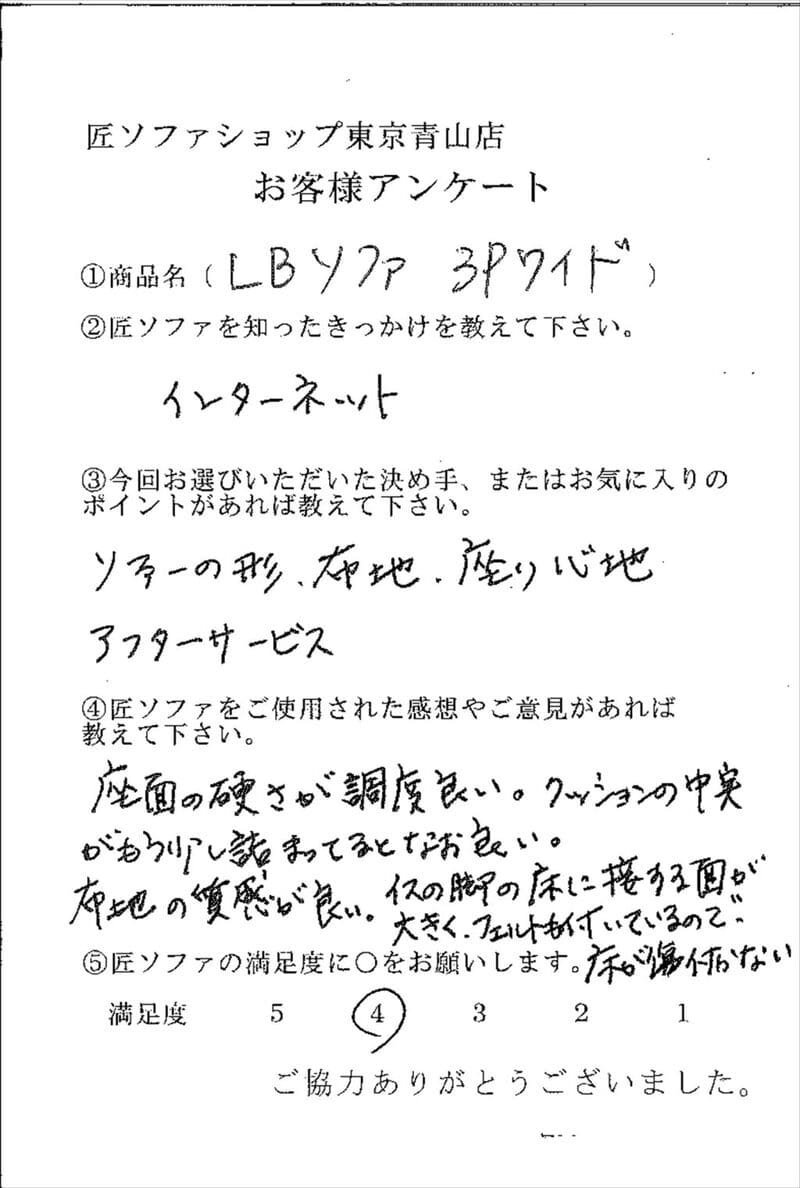 匠ソファショップ東京青山店
お客様アンケート
①商品名（LBソファ 3Pワイド）
②匠ソファを知ったきっかけを教えて下さい。
インターネット
③今回お選びいただいた決め手、またはお気に入りの
ポイントがあれば教えて下さい。
ソファーの形、布地、座り心地
アフターサービス
④匠ソファをご使用された感想やご意見があれば
教えて下さい。
座面の硬さが調度良い。クッションの中実
がもう少し詰まってるとなお良い。
布地の質感が良い。イスの脚の床に接する面が
大きく、フェルトも付いているので
床が傷付かない
⑤匠ソファの満足度に○をお願いします。
満足度 5 4 3 2 1
ご協力ありがとうございました。